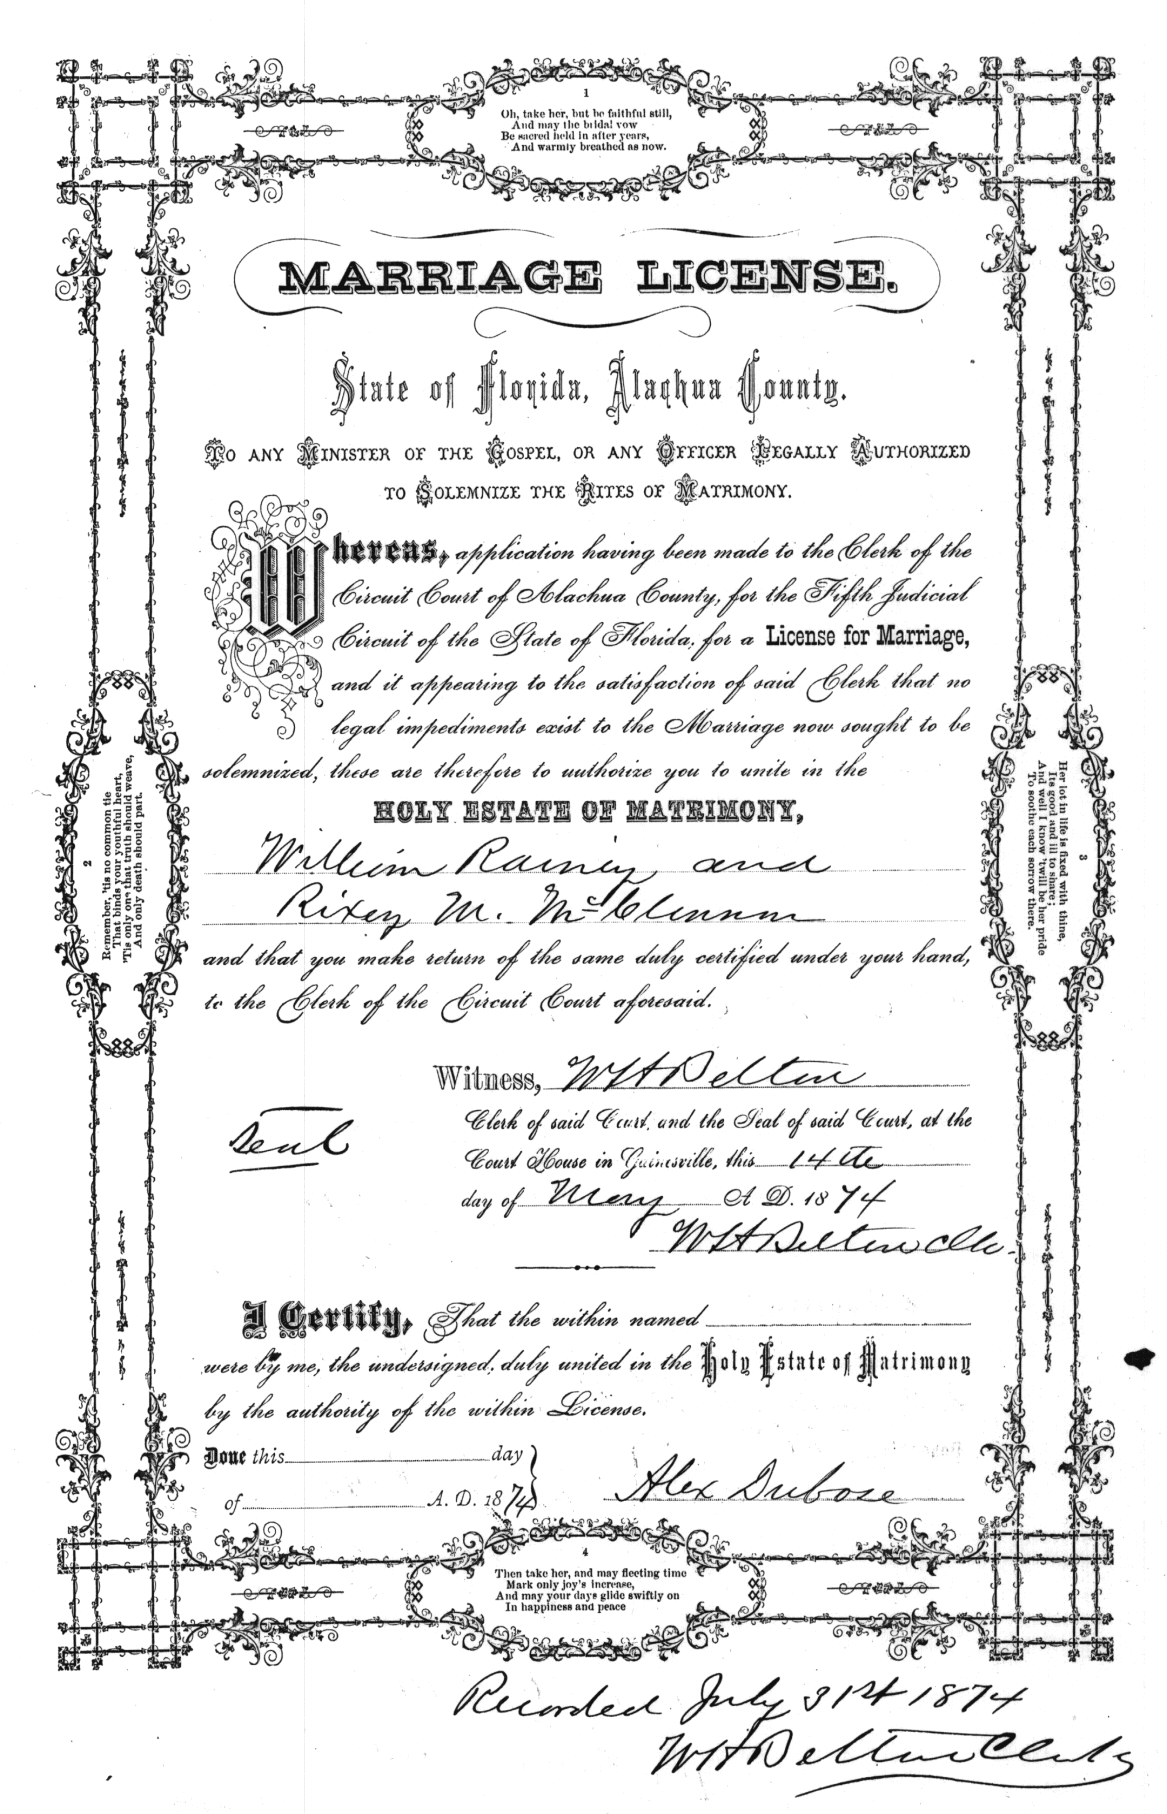 1
Oh, take her, but be faithful still,
And may the bridal vow
Be sacred held in after years,
And warmly breathed as now.
MARRIAGE LICENSE.
State of Florida, Alachua County.
TO ANY MINISTER OF THE GOSPEL, OR ANY OFFICER LEGALLY AUTHORIZED
TO SOLEMNIZE THE RITES OF MATRIMONY.
Whereas, application having been made to the Clerk of the
Circuit Court of Alachua County, for the Fifth Judicial
Circuit of the State of Florida, for a License for Marriage,
and it appearing to the satisfaction of said Clerk that no
legal impediments exist to the Marriage now sought to be
solemnized, these are therefore to authorize you to unite in the
HOLY ESTATE OF MATRIMONY,
William Rainey and
Rixey M. McClennon
and that you make return of the same duly certified under your hand,
to the Clerk of the Circuit Court aforesaid.
2
Remember, 'tis no common tie
That binds your youthful heart,
'Tis only one that truth should weave,
And only death should part.
3
Her lot in life is fixed with thine,
Its good and ill to share;
And well I know 'twill be her pride
To soothe each sorrow there.
Witness, W H Belton
Clerk of said Court, and the Seal of said Court, at the
Seal
Court House in Gainesville, this 14th
day of May A D. 1874
W H Belton Clk.
I Certify, That the within named
were by me, the undersigned, duly united in the Holy Estate of Matrimony
by the authority of the within License.
Done this day
of A. D. 1874
Alex Dubose
4
Then take her, and may fleeting time
Mark only joy's increase,
And may your days glide swiftly on
In happiness and peace
Recorded July 31st 1874
W H Belton Clerk